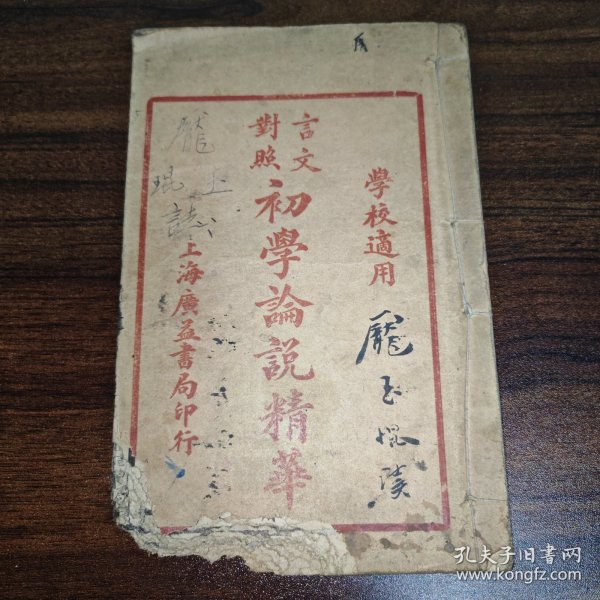 學校適用
言文對照
初學論說精華
上海廣益書局印行
龎玉焜
龎玉琨誌
孔夫子旧书网
www.kongfz.com